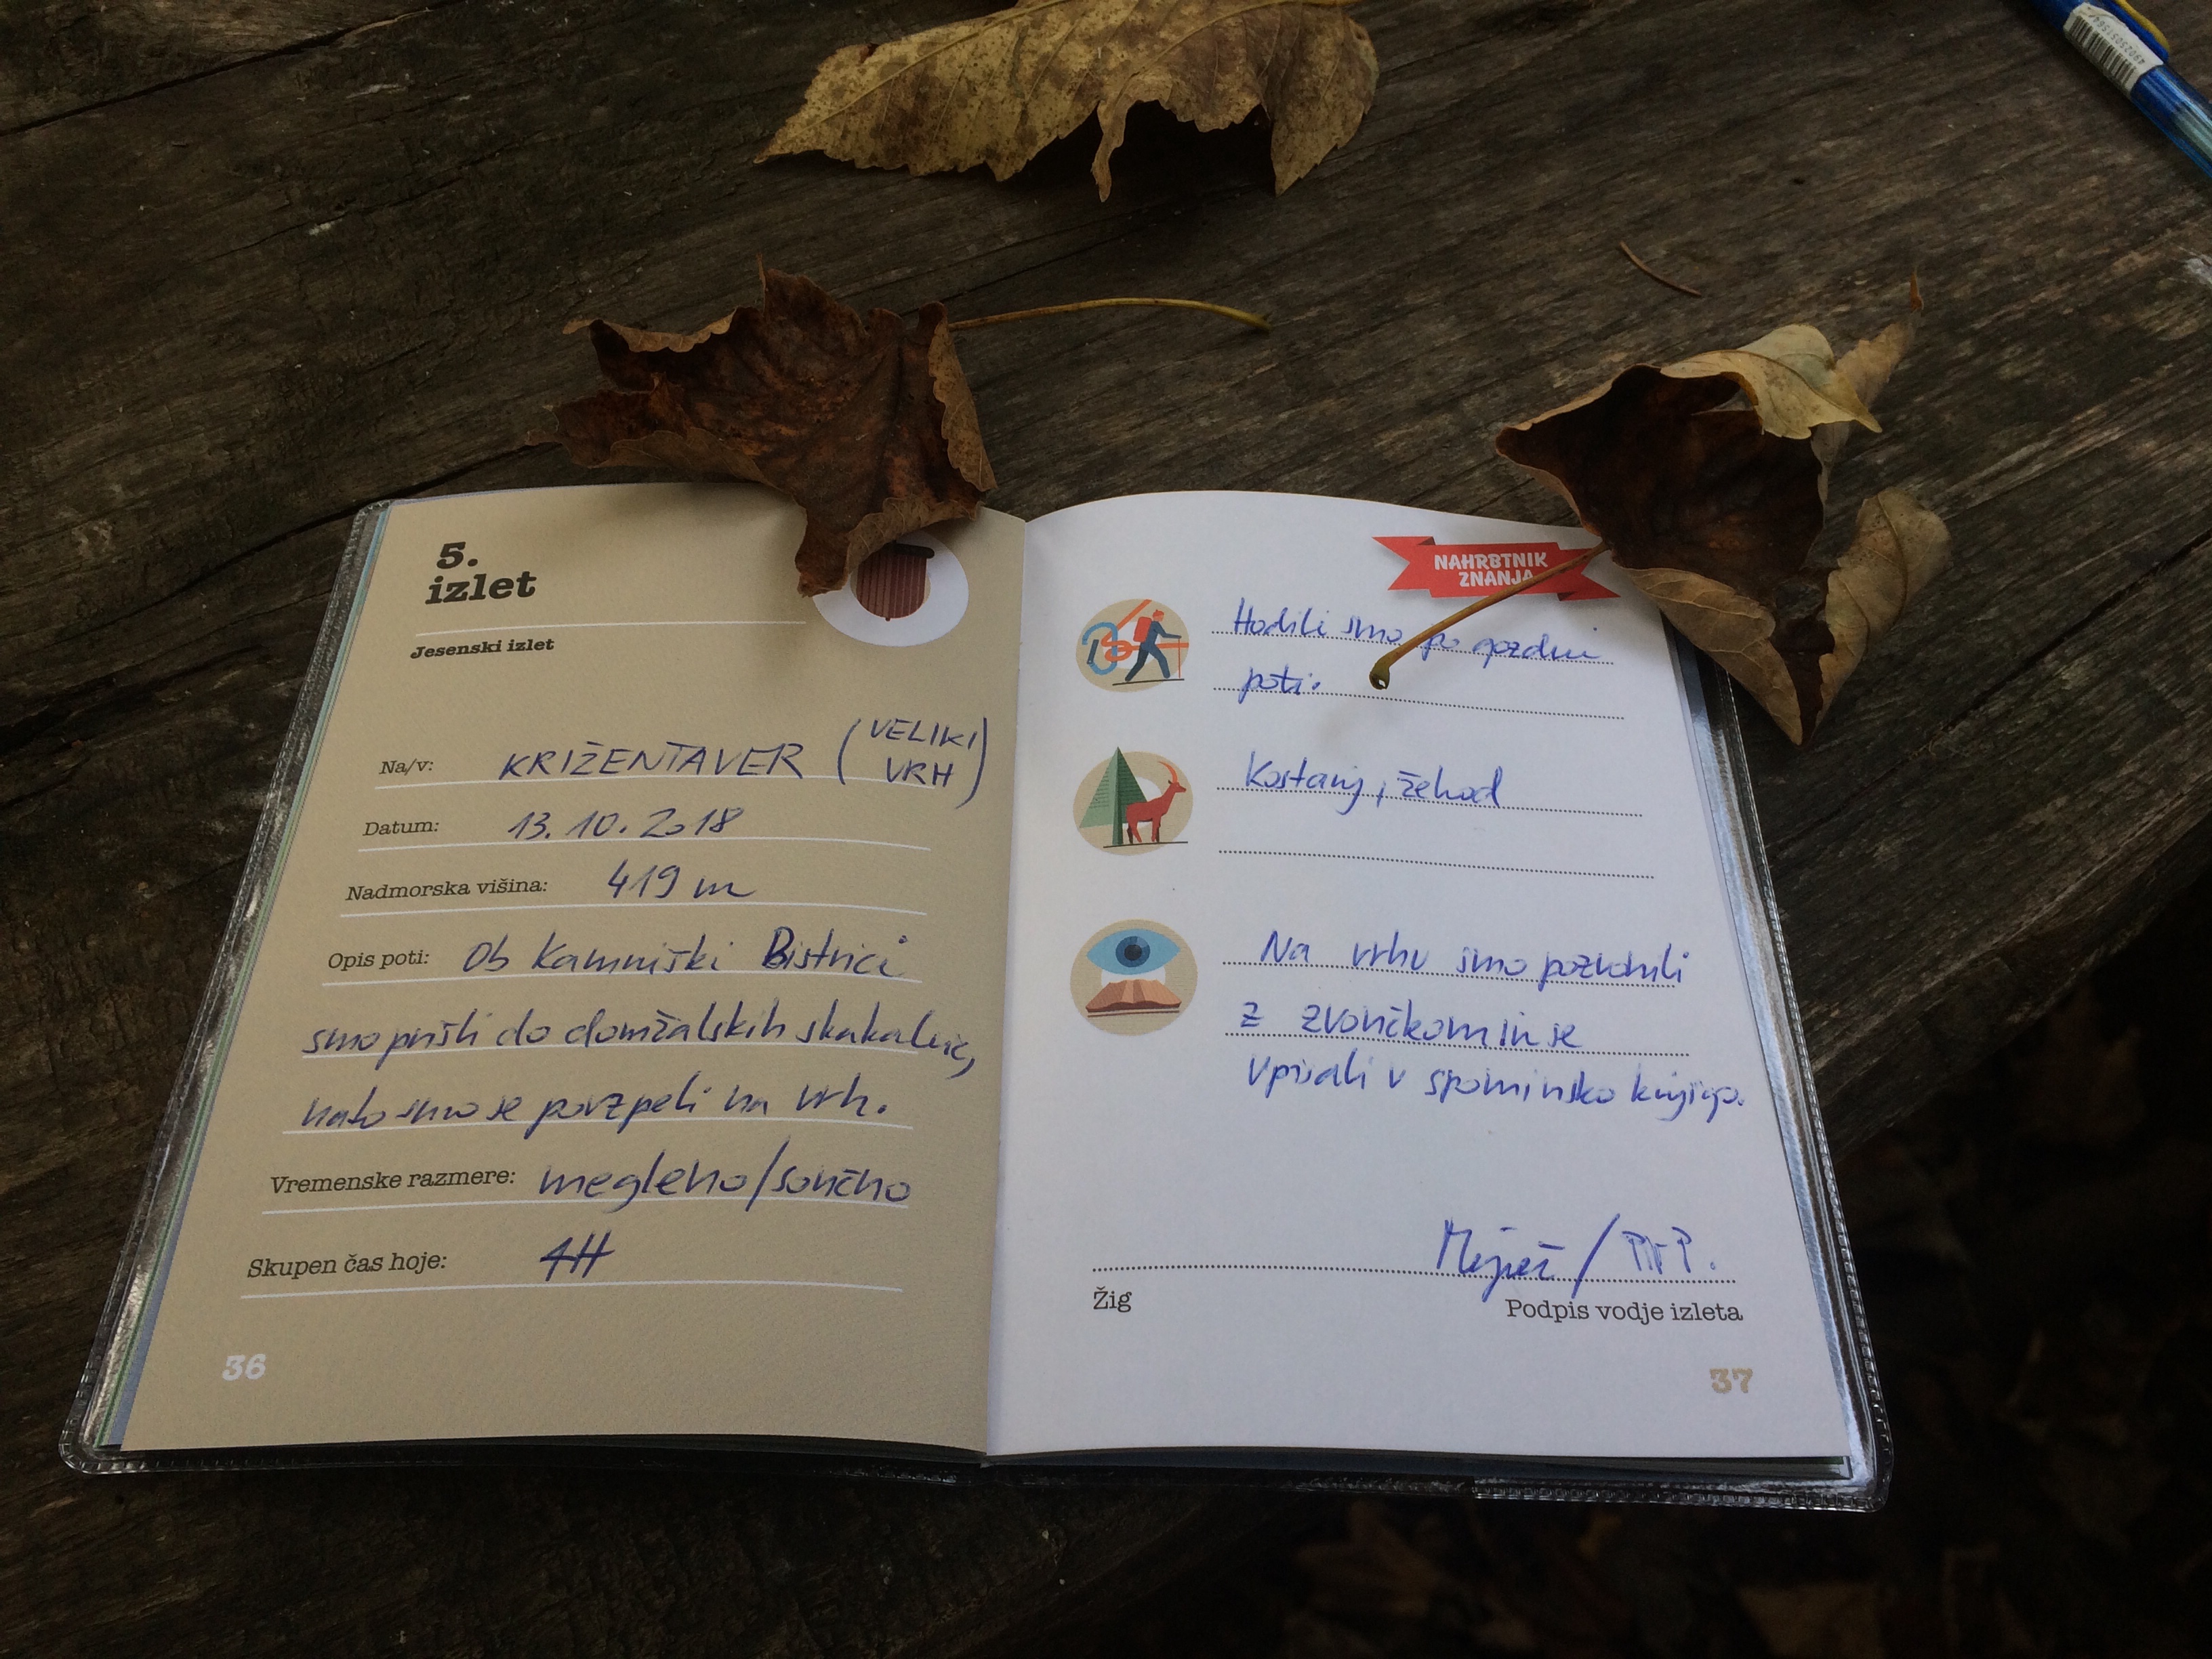 5.
izlet
Jesenski izlet
Na/v: KRIŽENTAVER (VELIKI VRH)
Datum: 13.10.2018
Nadmorska višina: 419 m
Opis poti: Ob Kamniški Bistrici
smo prišli do domžalskih skakalnic,
nato smo se povzpeli na vrh.
Vremenske razmere: megleno/sončno
Skupen čas hoje: 4H
36
NAHRBTNIK
ZNANJA
Hodili smo po gozdni
poti.
Kostanj, želod
Na vrhu smo pozvonili
z zvončkom in se
vpisali v spominsko knjigo.
Žig
Podpis vodje izleta
37